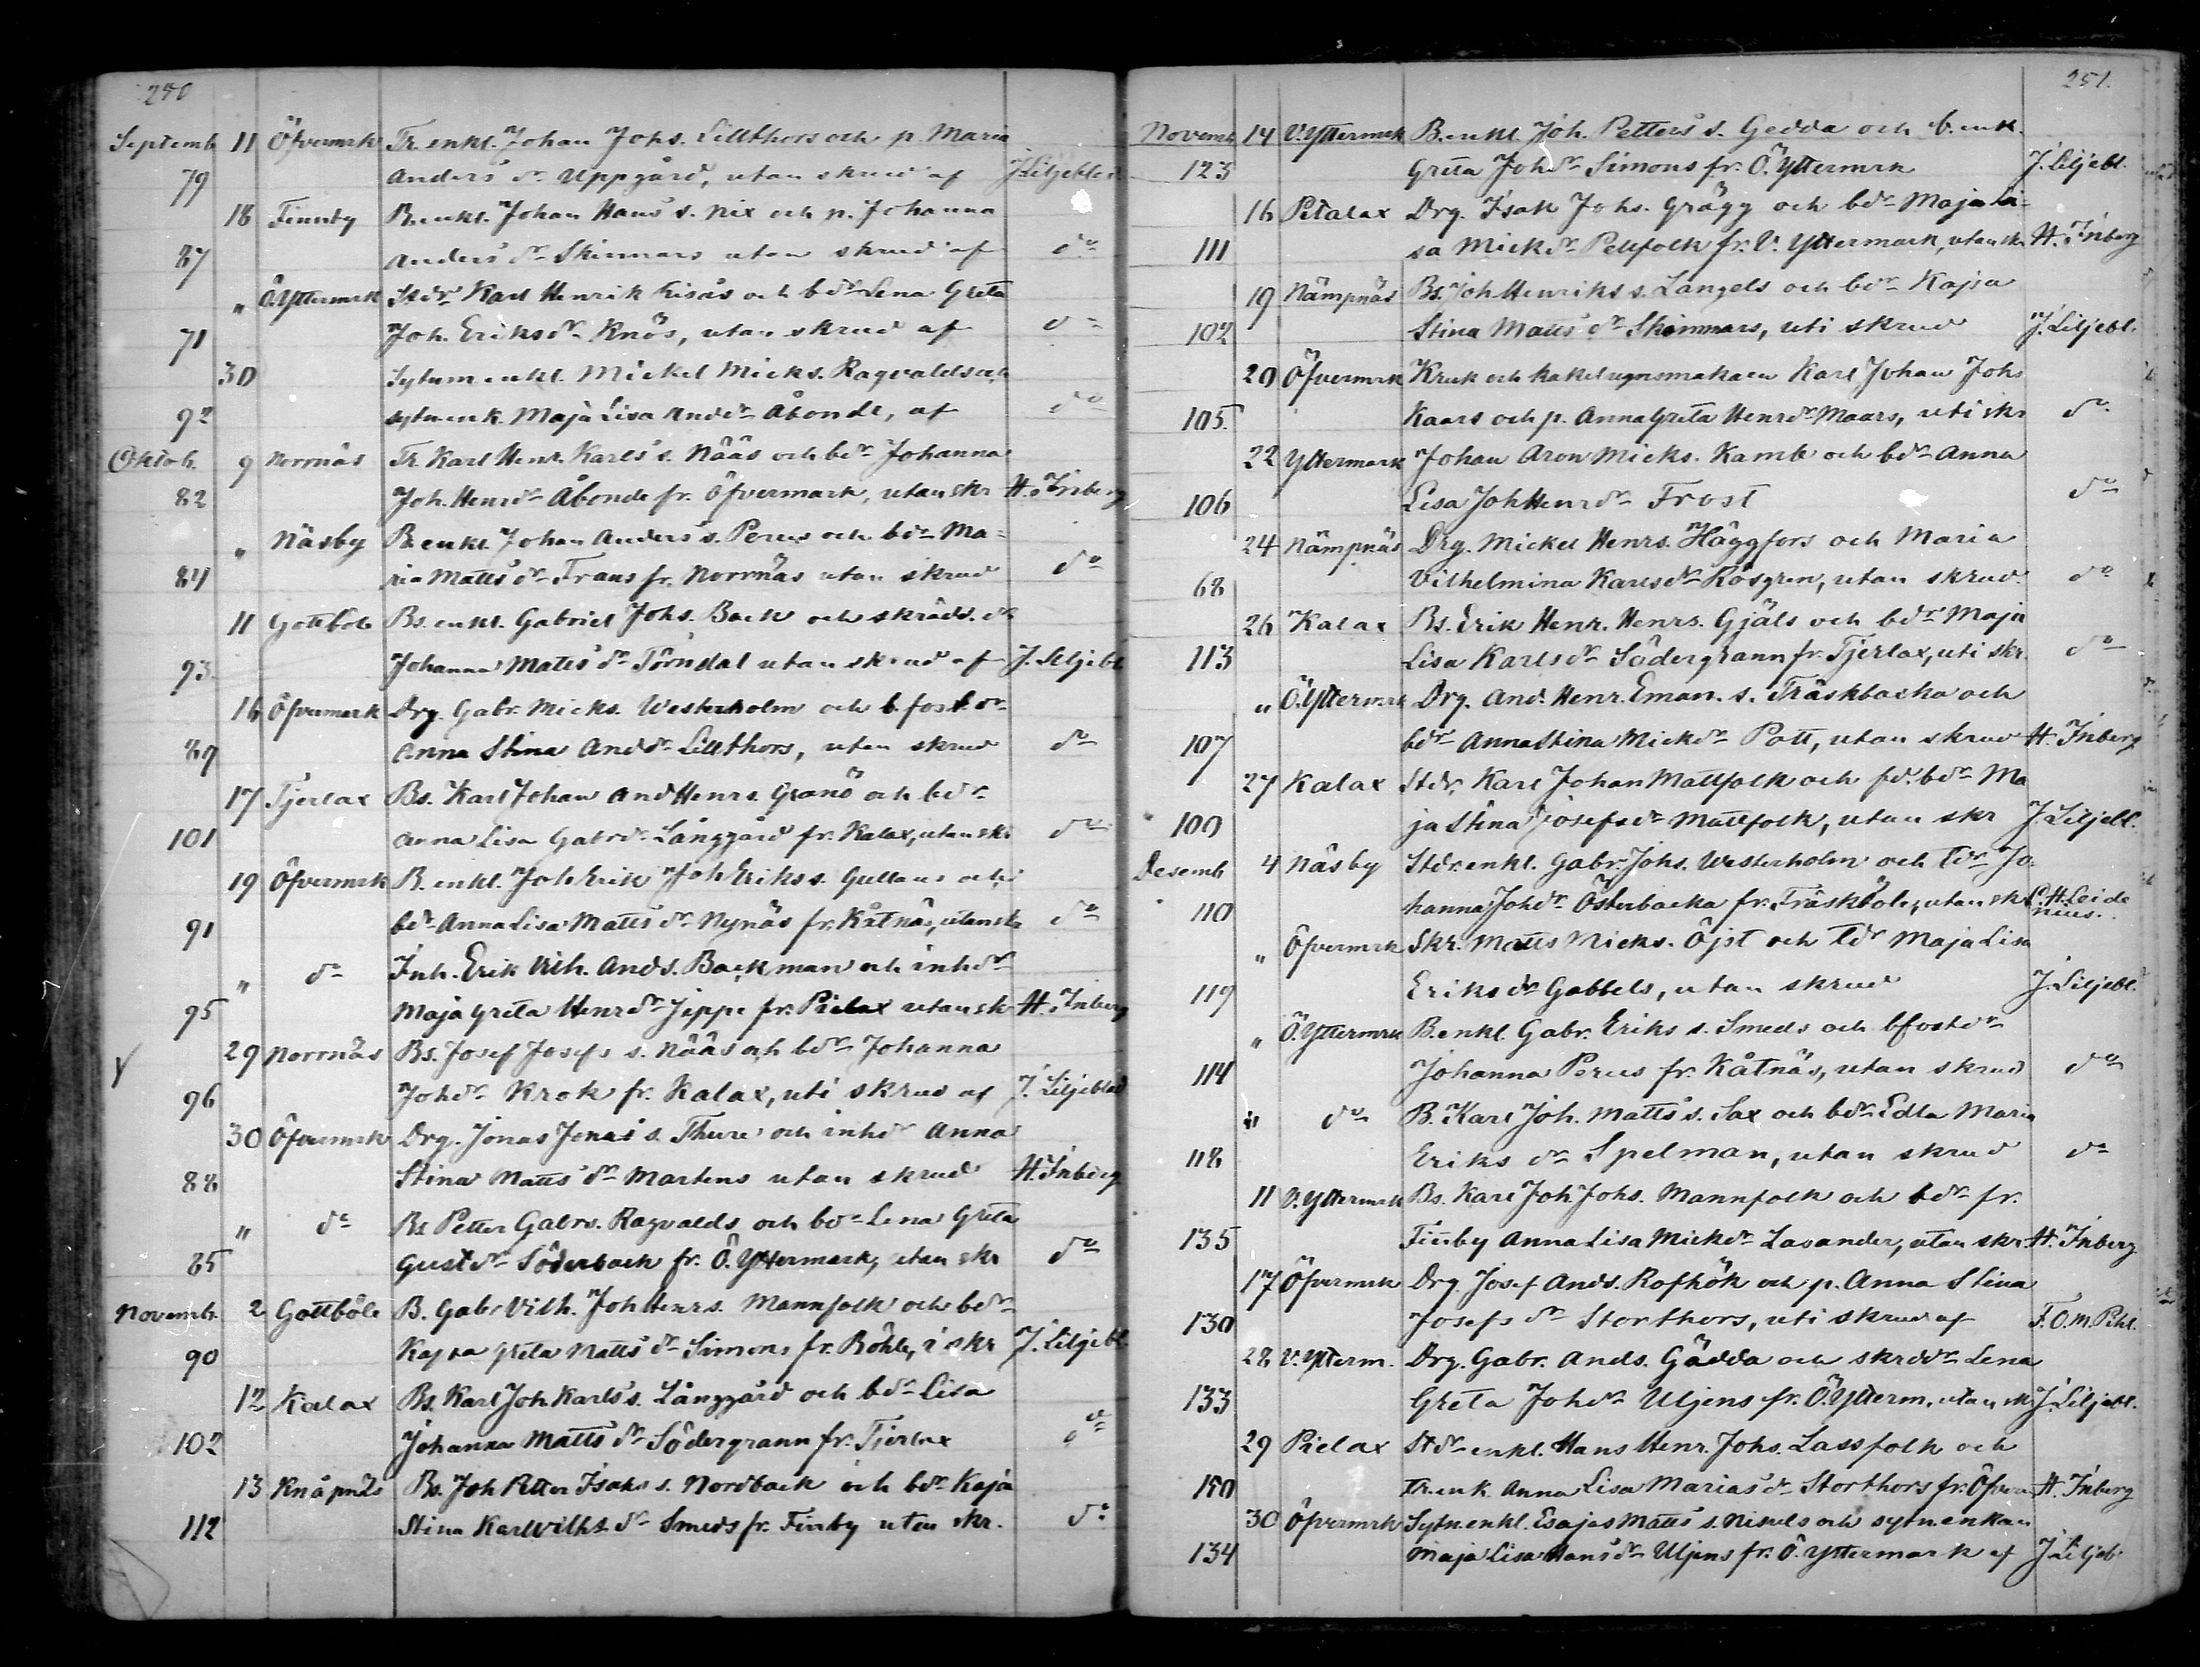 250
Septemb. 11 Öfvermrk Tr. enkl. Johan Johs. Lillthors och p. Maria
79 Anders dr Uppgård, utan skrud af J. Liljeblad
18 Finnby B. enkl. Johan Hans s. Nix och p. Johanna
87 Anders dr Skinnars utan skrud af do
„ Ö. Yttermrk Stdr Karl Henrik Risås och bdr Lena Greta
71 Joh. Eriks dr Knös, utan skrud af do
30 Sytnm enkl. Mickel Micks. Ragvalds och
92 sytn enk. Maja Lisa And dr Åbonde, af do
Oktob. 9 Norrnäs Tr. Karl Henr. Karls s. Nääs och bdr Johanna
82 Joh. Henr dr Åbonde fr. Öfvermark, utan skr H. Inberg
„ Näsby B. enkl. Johan Anders s. Perus och bdr Ma-
84 ria Matts dr Frans fr. Norrnäs utan skrud do
11 Gottböle Bs. enkl. Gabriel Johs. Back och skrädd. dr
93 Johanna Matts dr Törndal utan skrud af J. Liljebl
16 Öfvermark Drg. Gabr. Micks. Westerholm och b. fost. dr
89 Anna Stina And dr Lillthors, utan skrud do
17 Tjerlax Bs. Karl Johan And Henrs. Granö och bdr
101 Anna Lisa Gabr dr Långgård fr. Kalax, utan skr do
19 Öfvermrk B. enkl. Joh Erik Joh Eriks s. Gullans och
91 bdr Anna Lisa Matts dr Nynäs fr. Kåtnäs, utan skr do
„ do Inh. Erik Vilh. Ands. Backman och inh dr
95 Maja Greta Henr dr Jeppe fr. Pielax utan skr H. Inberg
29 Norrnäs Bs. Josef Josefs s. Nääs och bdr Johanna
96 Joh dr Krok fr. Kalax, uti skrud af J. Liljeblad
30 Öfvermrk Drg. Jonas Jonas s. Thure och inh dr Anna
88 Stina Matts dr Martens utan skrud H. Inberg
„ do Bs Petter Gabrs. Ragvalds och bdr Lena Greta
85 Gust dr Söderback fr. Ö. Yttermark, utan skr do
Novemb. 2 Gottböle B. Gabr Vilh. Joh Henrs. Mannfolk och bdr
90 Kajsa Greta Matts dr Simons fr. Böhle, i skr J. Liljebl.
12 Kalax Bs. Karl Joh Karls s. Långgård och bdr Lisa
102 Johanna Matts dr Södergrann fr. Tjerlax do
13 Knåpnäs Bs. Joh Petter Isaks s. Nordback och bdr Kaja
112 Stina Karl Vilhs dr Smeds fr. Finby utan skr. do
251.
Novemb. 14 V. Yttermrk B. enkl. Joh. Petters s. Gedda och b. enk.
123 Greta Joh dr Simons fr. Ö. Yttermrk J. Liljebl.
16 Pielax Drg. Isak Johs. Grägg och bdr Maja Li-
111 sa Mick dr Pellfolk fr. V. Yttermark, utan skr H. Inberg
19 Nämpnäs Bs. Joh Henriks s. Långels och bdr Kajsa
102 Stina Matts dr Skinnars, uti skrud J. Liljebl.
20 Öfvermrk Kruk och kakelugnsmakaren Karl Johan Johs
105. Kaars och p. Anna Greta Henr dr Maars, uti skr do
22 Yttermark Johan Aron Micks. Kamb och bdr Anna
106 Lisa Joh Henr dr Frost do
24 Nämpnäs Drg. Mickel Henrs. Häggfors och Maria
68 Vilhelmina Karls dr Rosgren, utan skrud. do
26 Kalax Bs. Erik Henr. Henrs. Gjäls och bdr Maja
113 Lisa Karls dr Södergrann fr. Tjerlax, uti skr. do
„ Ö. Yttermrk Drg. And. Henr. Eman. s. Träskbacka och
107 bdr Anna Stina Mick dr Pott, utan skrud H. Inberg
27 Kalax Stdr. Karl Johan Mattfolk och fd. bdr Ma
100 ja Stina Josefs dr Mattfolk, utan skr J. Liljebl.
Desemb 4 Näsby Stdr. enkl. Gabr. Johs. Westerholm och tdr Jo-
110 hanna Joh dr Österbacka fr. Träskböle, utan skr C. H. Leide
nius.
„ Öfvermrk Skr. Matts Micks. Öjst och tdr Maja Lisa
119 Eriks dr Gabbels, utan skrud J. Liljebl.
„ Ö. Yttermrk B. enkl. Gabr. Eriks s. Smeds och bfost dr
114 Johanna Perus fr. Kåtnäs, utan skrud do
„ do B. Karl Joh. Matts s. Sax och bdr Edla Maria
118 Eriks dr Spelman, utan skrud do
11 V. Yttermrk Bs. Karl Joh Johs. Mannfolk och bdr fr.
135 Finby Anna Lisa Mick dr Lavander, utan skr. H. Inberg
17 Öfvermrk Drg. Josef Ands. Rofhök och p. Anna Stina
130 Josefs dr Storthors, uti skrud af F. O. M. Pihl.
28 V. Ytterm. Drg. Gabr. Ands. Gädda och skrddr Lena
133 Greta Joh dr Uljens fr. Ö. Ytterm. utan skr J. Liljebl.
29 Pielax Stdr enkl. Hans Henr. Johs. Lassfolk och
150 tr. enk Anna Lisa Marias dr Storthors fr. Öfverm H. Inberg
30 Öfvermrk Sytn. enkl. Esajas Matts s. Nisuls och sytn. enkan
134 Maja Lisa Hans dr Uljens fr. Ö. Yttermark af J. Liljeb.